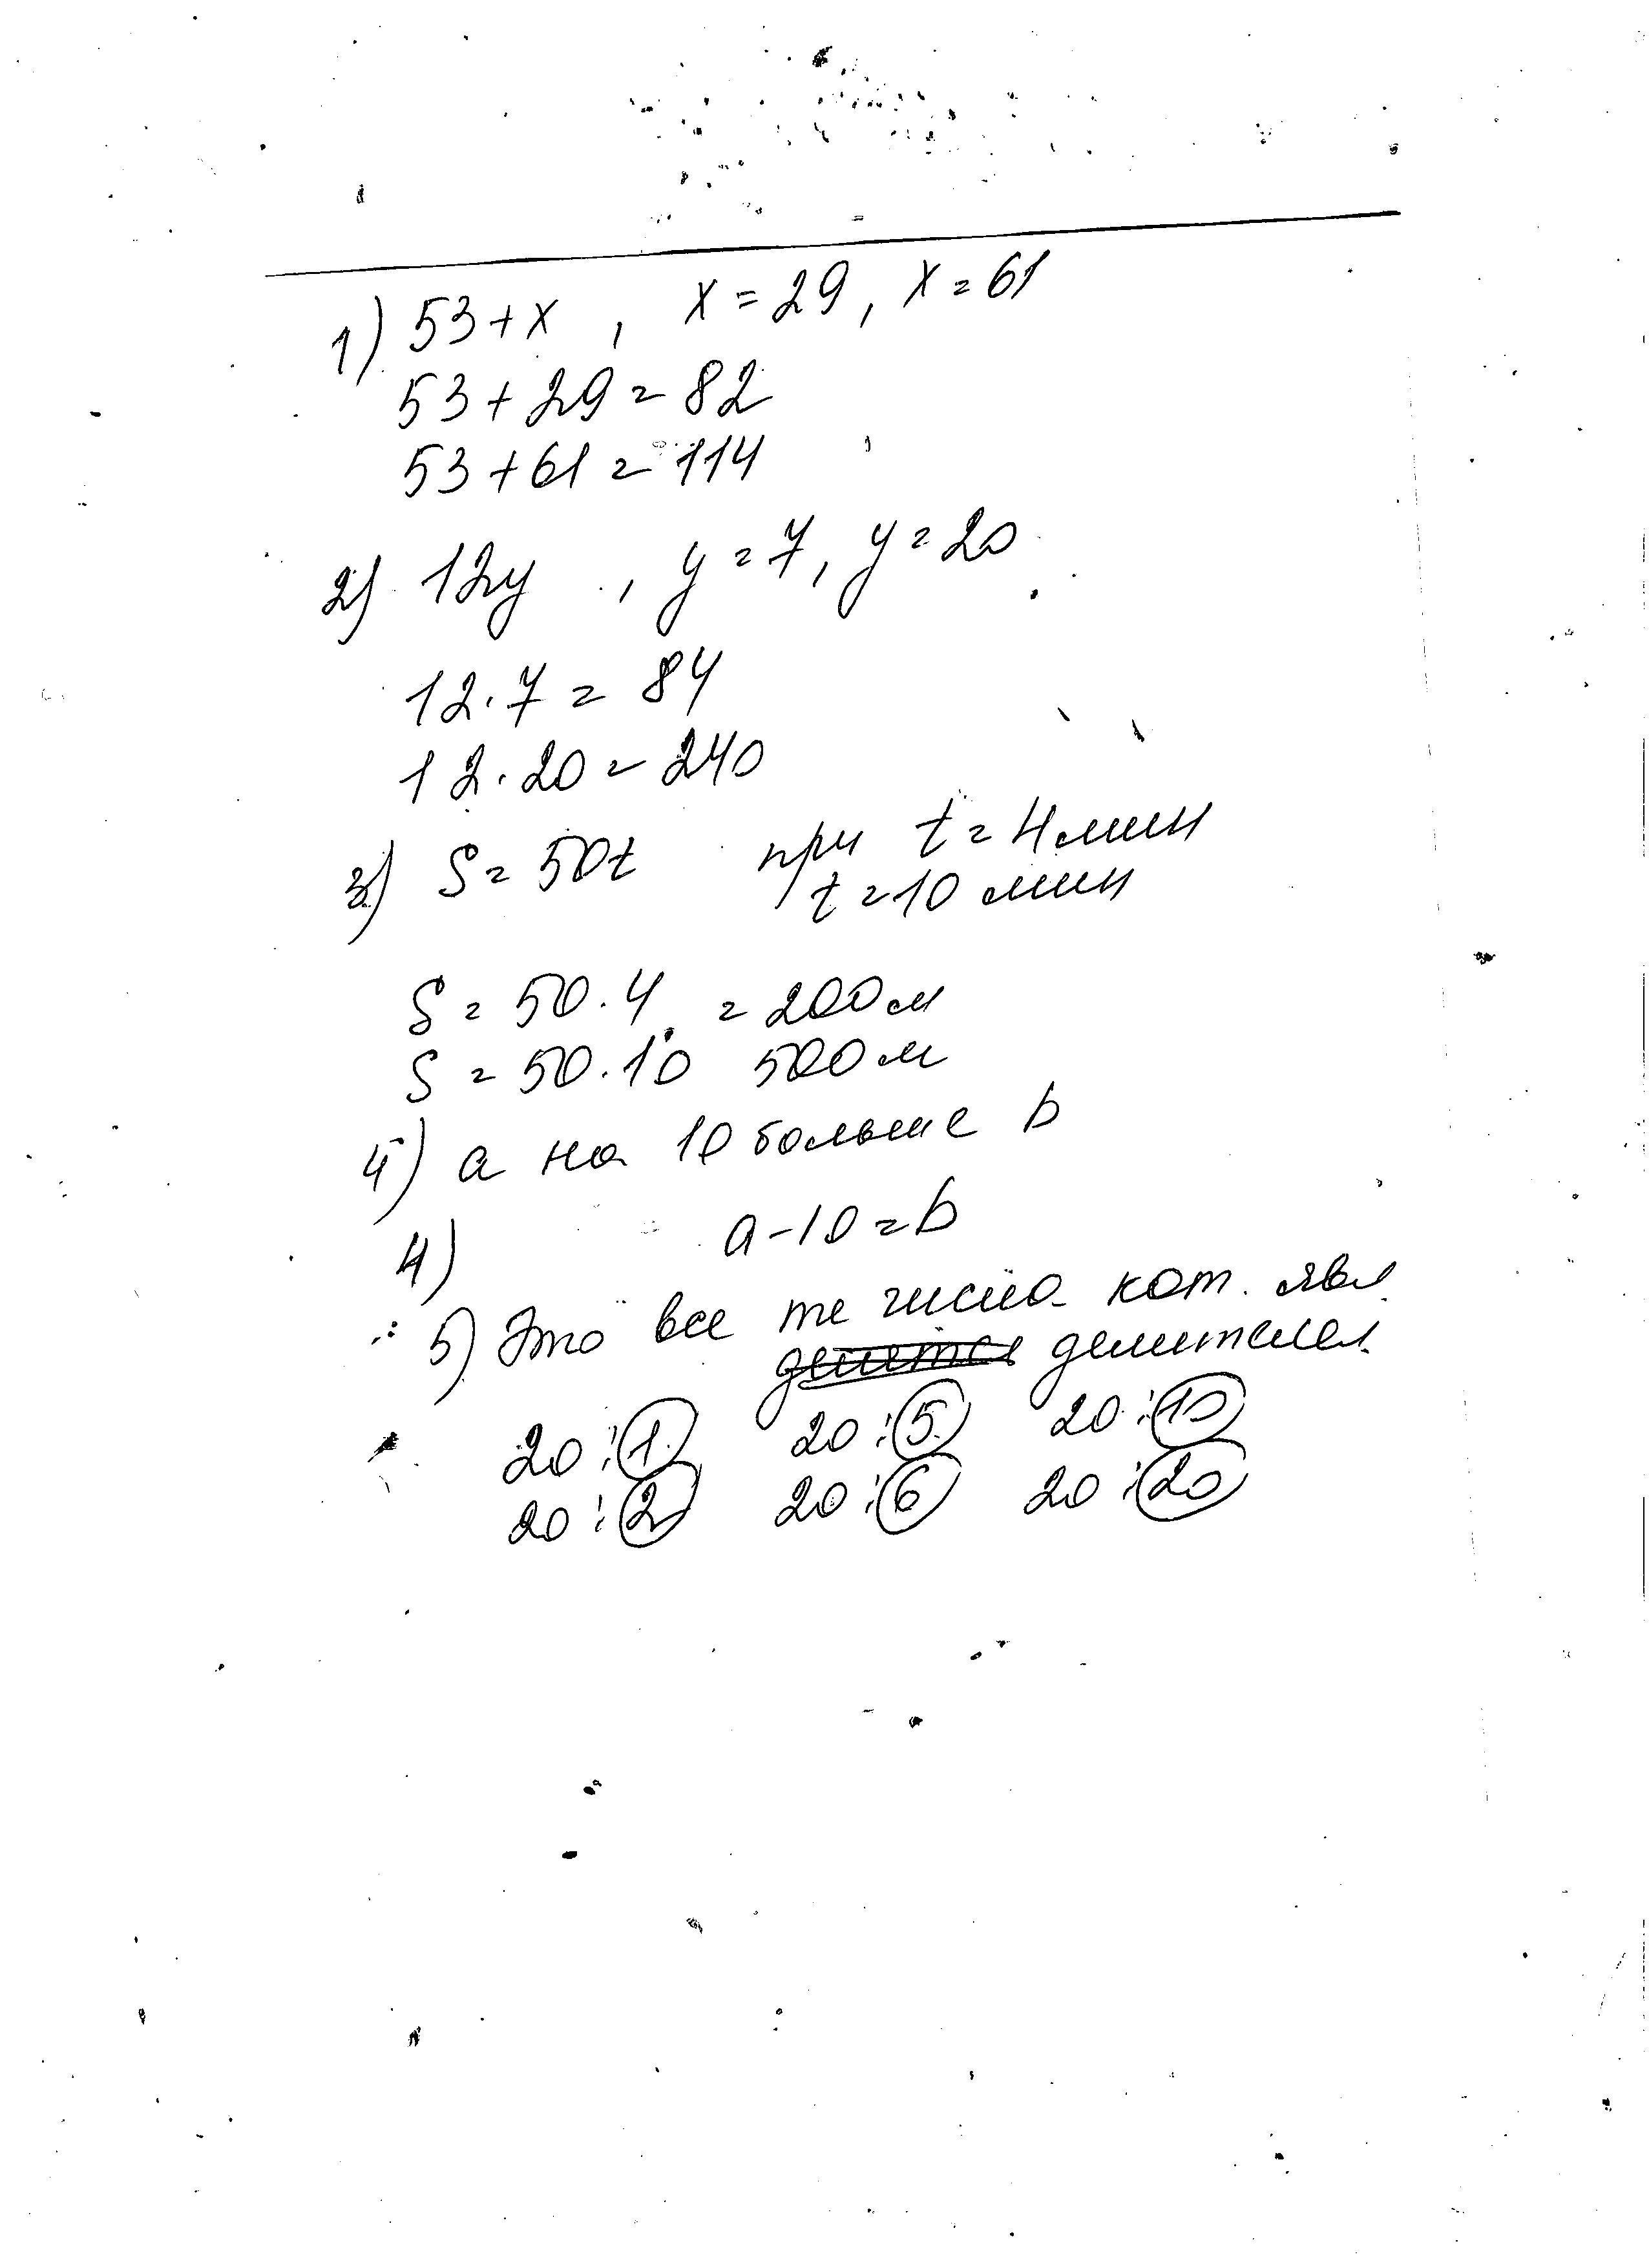 1) 53+x , x=29, x=61
53+29=82
53+61=114
2) 12y , y=7, y=20
12·7=84
12·20=240
3) S=50t при t=4мин
t=10 мин
S=50·4 =200м
S=50·10 500м
4) a на 10 больше b
a-10=b
4)
5) Это все те числа кот. явл
делится делителем
20:1 20:5 20:10
20:2 20:6 20:20